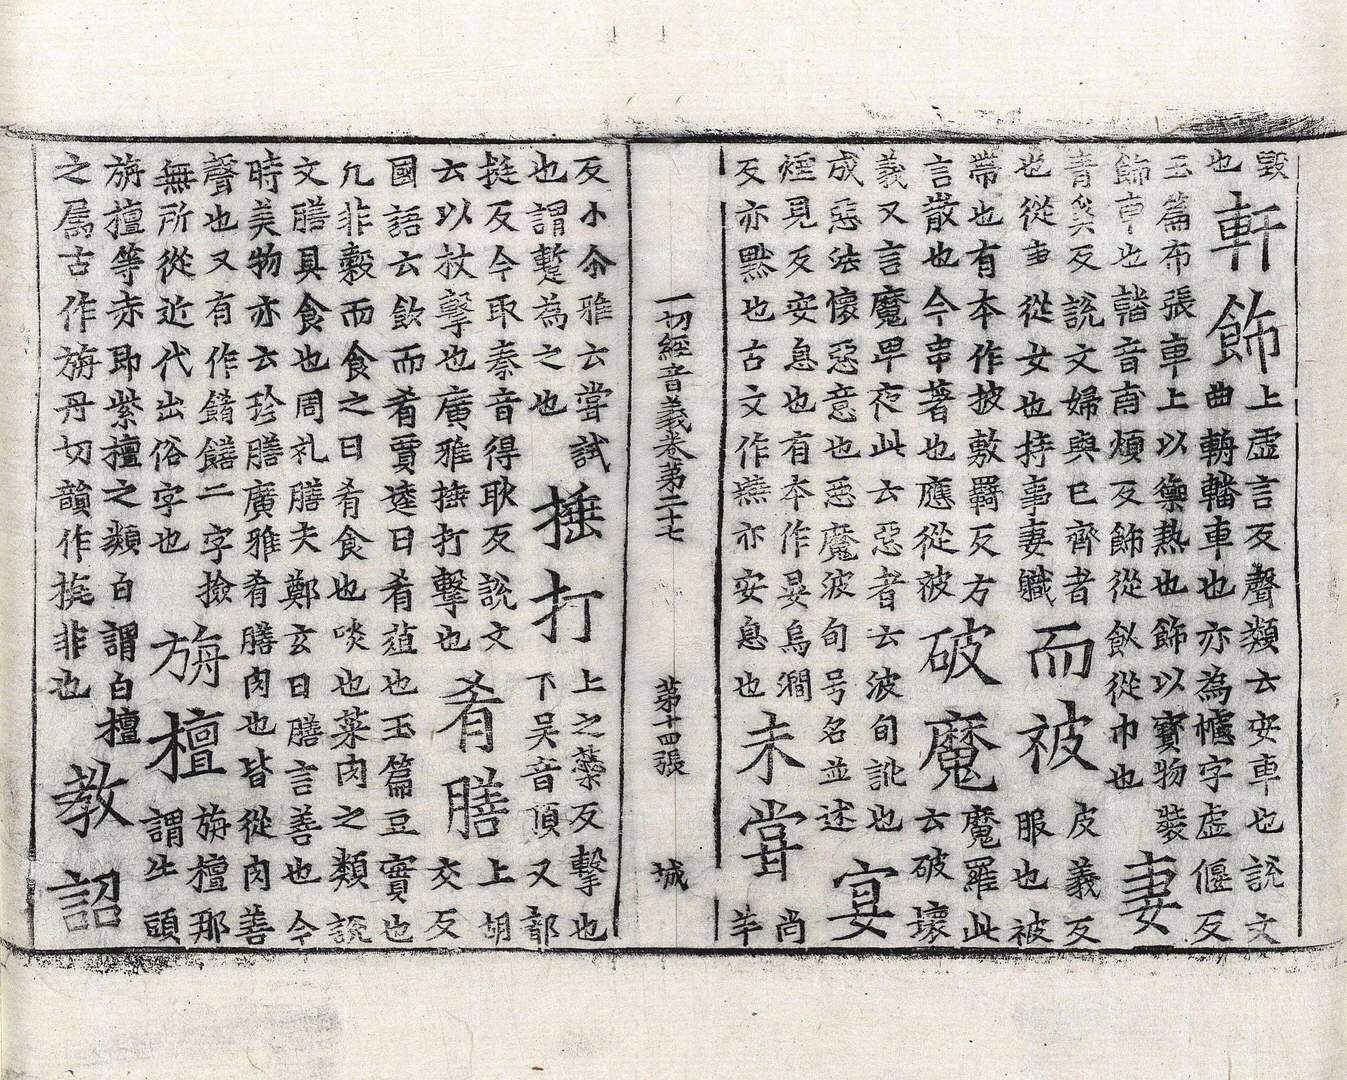 毀
也
軒飾
上虛言反聲類云安車也說文
曲輈轓車也亦為幰字虛偃反
玉篇布張車上以禦熱也飾以寶物裝
飾車也轓音甫煩反飾從飤從巾也
妻
青奚反說文婦與已齊者
也從 從女也持事妻軄
而被
皮義反
服也被
帶也有本作披敷羇反方
言散也今韋著也應從被
破魔
魔羅此
云破壞
義又言魔旱夜此云惡者云波旬訛也
成惡法懷惡意也惡魔波旬号名並述
宴
煙見反安息也有本作晏烏澗
反亦黙也古文作 亦安息也
未甞
尚
羊
一切經音義卷第二十七 第十四張 城
反小尒雅云甞試
也謂蹔為之也
捶打
上之蘂反擊也
下吴音頂又都
挺反今取秦音得耿反說文
云以杖擊也廣雅捶打擊也
肴膳
上胡
交反
國語云飲而肴賈逵曰肴葅也玉篇豆實也
凡非穀而食之曰肴食也啖也菜肉之類說
文膳具食也周礼膳夫鄭玄曰膳言善也今
時美物亦云珍膳廣雅肴膳肉也皆從肉善
聲也又有作餚饍二字撿
無所從近代出俗字也
旃檀
旃檀那
謂牛頭
旃檀等赤即紫檀之類白謂白檀
之属古作旃丹切韻作 非也
教詔